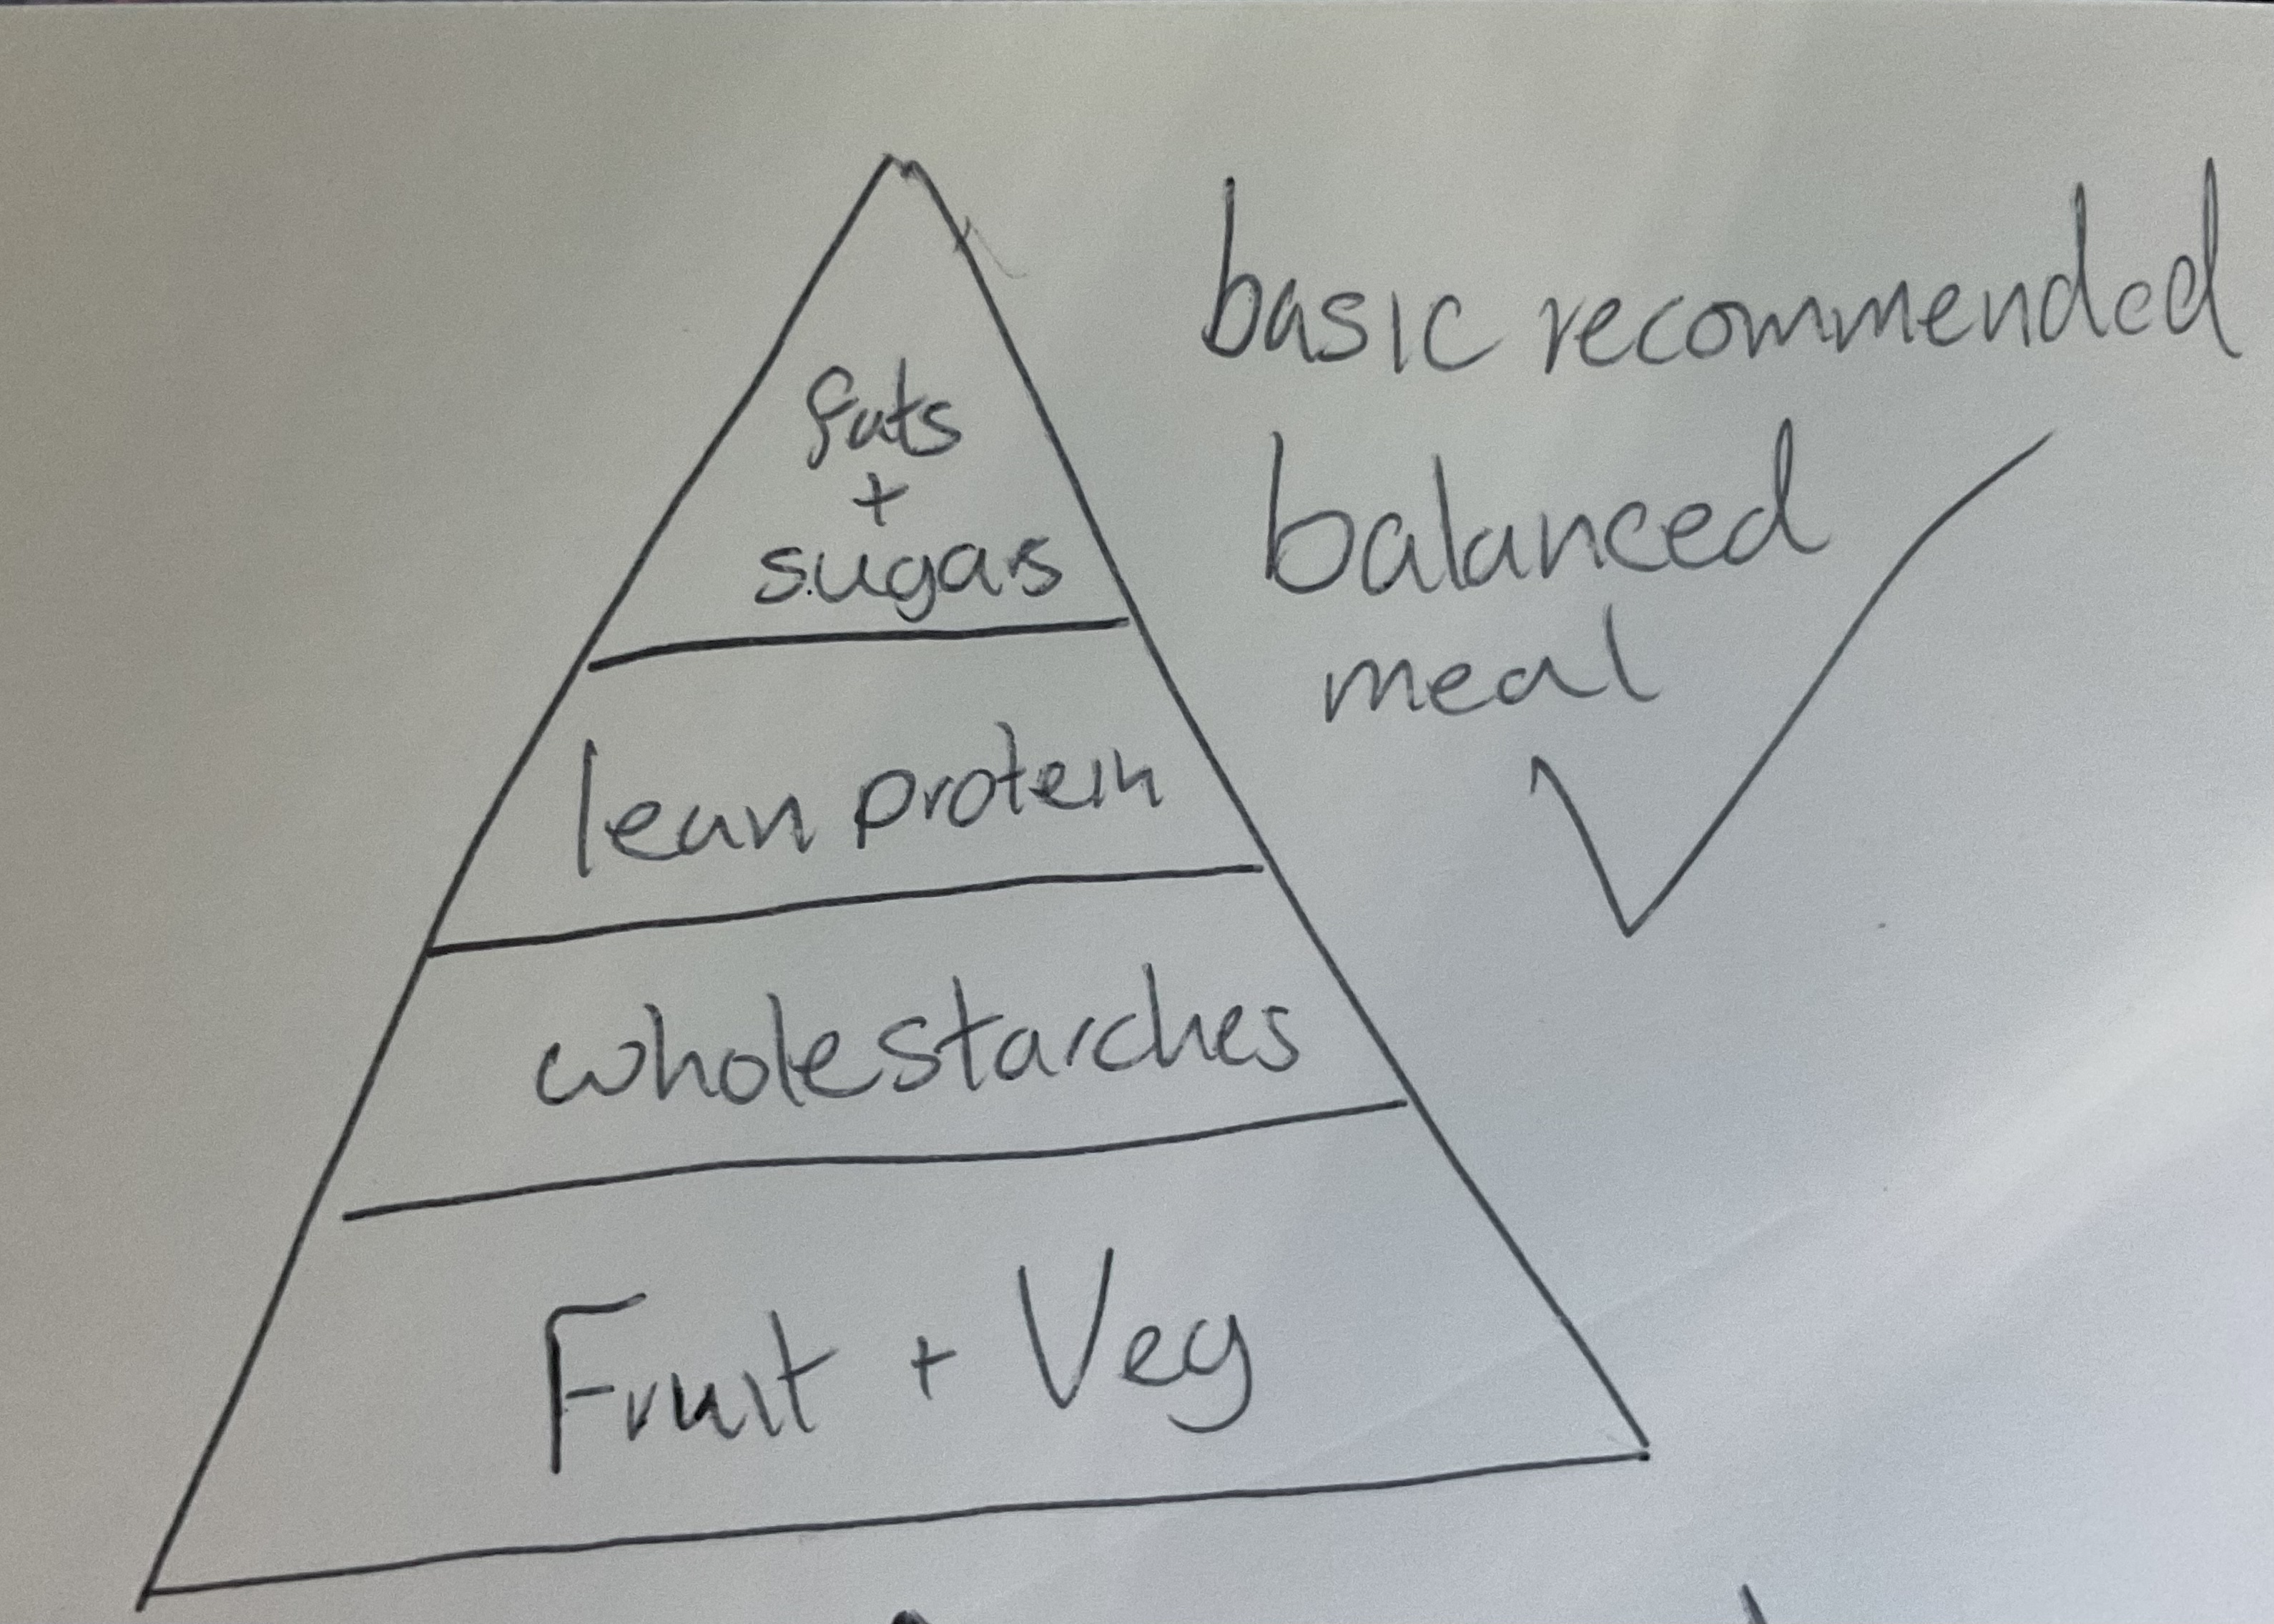 basic recommended
balanced
meal
fats
+
sugars
lean protein
whole starches
Fruit + Veg